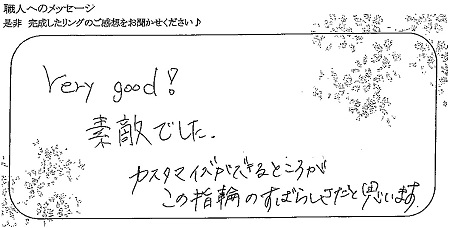 職人へのメッセージ
是非 完成したリングのご感想をお聞かせください♪
Very good!
素敵でした.
カスタマイズができるところが
この指輪のすばらしさだと思います.